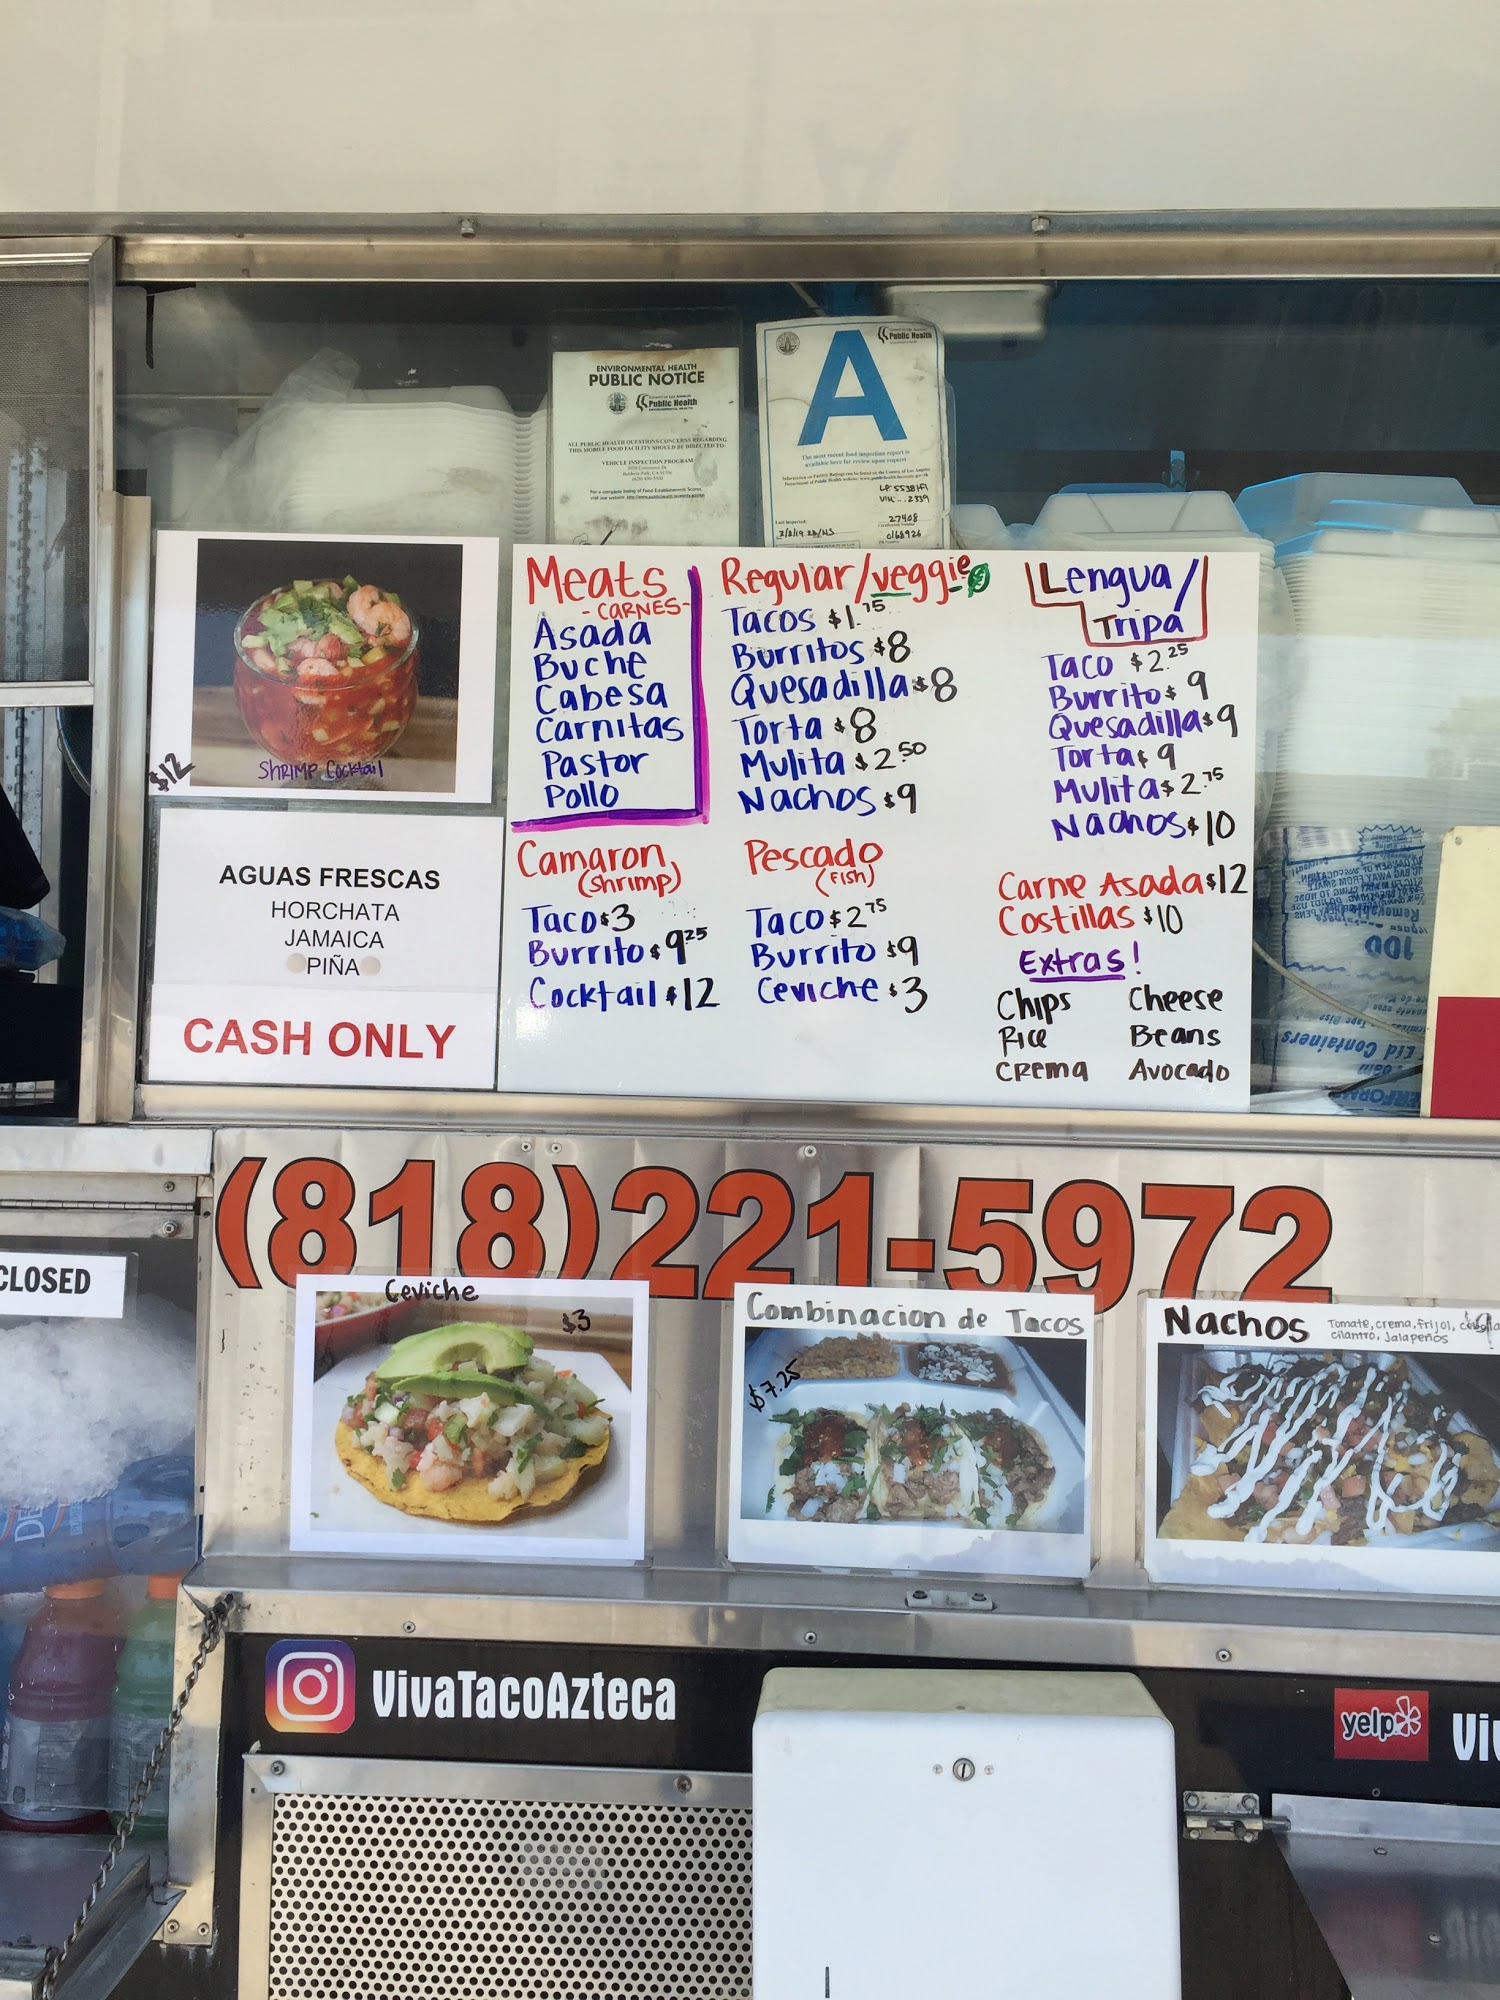 ENVIRONMENTAL HEALTH
PUBLIC NOTICE
Public Health
ALL PUBLIC HEALTH QUESTIONS/CONCERNS REGARDING
THIS MOBILE FOOD FACILITY SHOULD BE DIRECTED TO:
VEHICLE INSPECTION PROGRAM
A
Public Health
The most recent food inspection report is
available here for review upon request
27408
Shrimp Cocktail
$12
AGUAS FRESCAS
HORCHATA
JAMAICA
PIÑA
CASH ONLY
Meats
-CARNES-
Asada
Buche
Cabesa
Carnitas
Pastor
Pollo
Regular/veggie
Tacos $1.75
Burritos $8
Quesadilla $8
Torta $8
Mulita $2.50
Nachos $9
Lengua/
Tripa
Taco $2.25
Burrito $9
Quesadilla $9
Torta $9
Mulita $2.75
Nachos $10
Camaron
(shrimp)
Taco $3
Burrito $9.25
Cocktail $12
Pescado
(Fish)
Taco $2.75
Burrito $9
Ceviche $3
Carne Asada $12
Costillas $10
Extras!
Chips Cheese
Rice Beans
Crema Avocado
(818)221-5972
CLOSED
Ceviche
$3
Combinacion de Tacos
$7.25
Nachos
Tomate, crema, frijol,
cilantro, Jalapeños
$9
VivaTacoAzteca
yelp